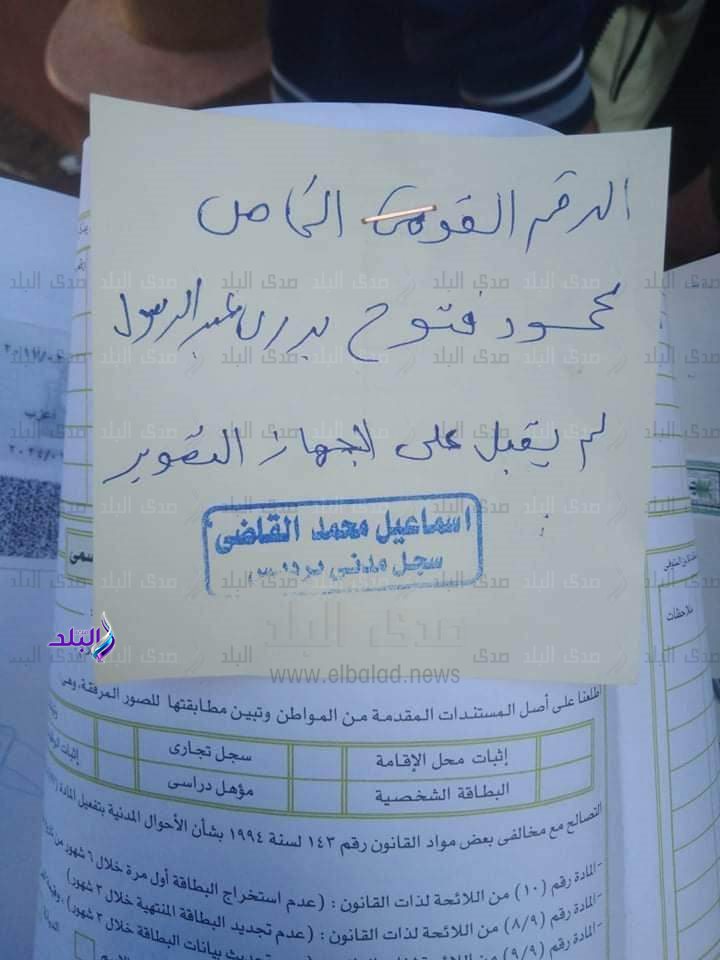 الرقم القومى الخاص
محمود فتوح بدرى عبد الرسول
لم يقبل على الجهاز التصوير
اسماعيل محمد القاضى
سجل مدنى
صدى البلد
البلد
www.elbalad.news
ملاحظات
اطلعنا على أصل المستندات المقدمة من المواطن وتبين مطابقتها للصور المرفقة، وهى
إثبات محل الإقامة
سجل تجارى
البطاقة الشخصية
مؤهل دراسى
التصالح مع مخالفى بعض مواد القانون رقم ١٤٣ لسنة ١٩٩٤ بشأن الأحوال المدنية بتفعيل المادة
-المادة رقم (١٠) من اللائحة لذات القانون : (عدم استخراج البطاقة أول مرة خلال ٦ شهور من
-المادة رقم (٨/٩) من اللائحة لذات القانون : (عدم تجديد البطاقة المنتهية خلال ٣ شهور)
-المادة رقم (٩/٩) من اللائحة تحديث بيانات البطاقة خلال ٣ شهور)